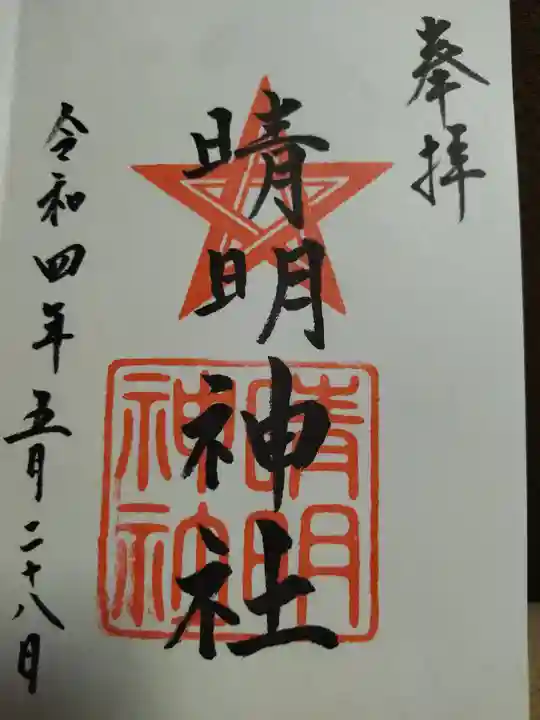 奉拝
晴明神社
晴明
神社
令和四年五月二十八日